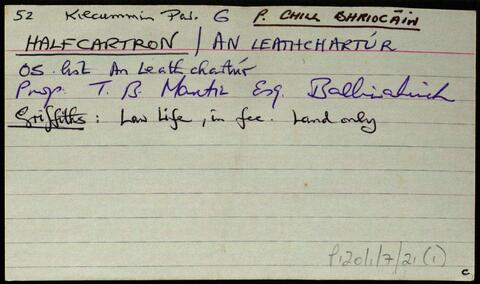 52 Kilcummin Par. G P. CHILL BHRIOCÁIN
HALFCARTRON / AN LEATHCHARTÚR
OS. list An Leath chartúr
Prop. T. B. Martin Esq. Ballinahinch
Griffiths: Law Life, in fee. Land only
P120/1/7/21(1)
C